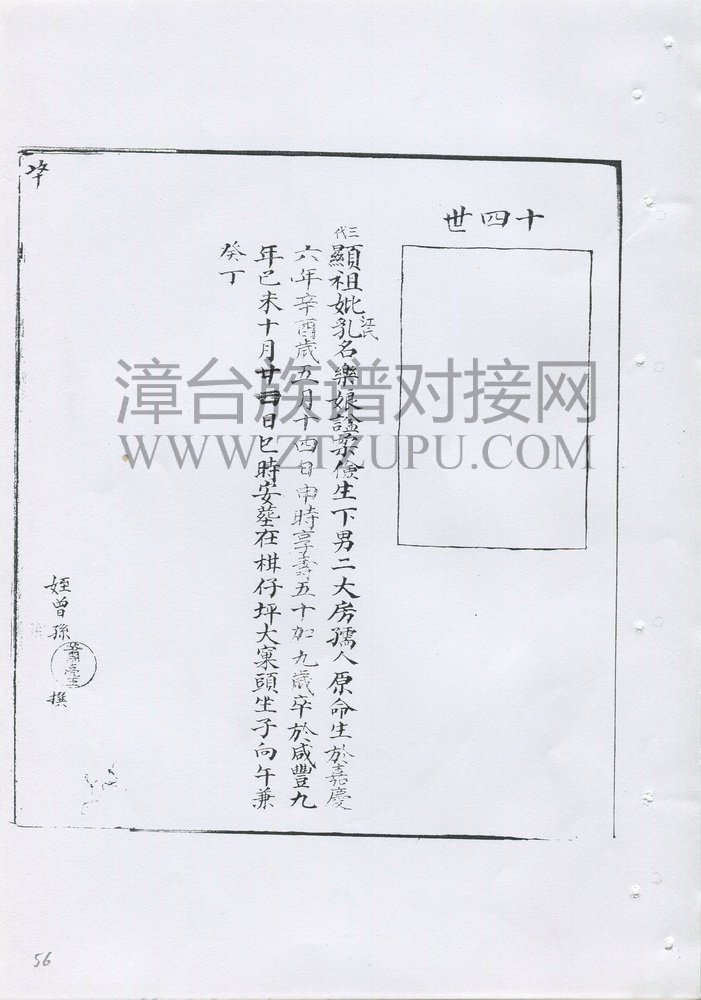 十四世
三代
顯祖妣江氏乳名樂娘謚柔儉生下男二大房孺人原命生於嘉慶
六年辛酉歲五月十四日申時享壽五十加九歲卒於咸豐九
年巳未十月廿四日巳時安塟在柑仔坪大窠頭坐子向午兼
癸丁
姪曾孫 撰
漳台族谱对接网
WWW.ZTZUPU.COM
56